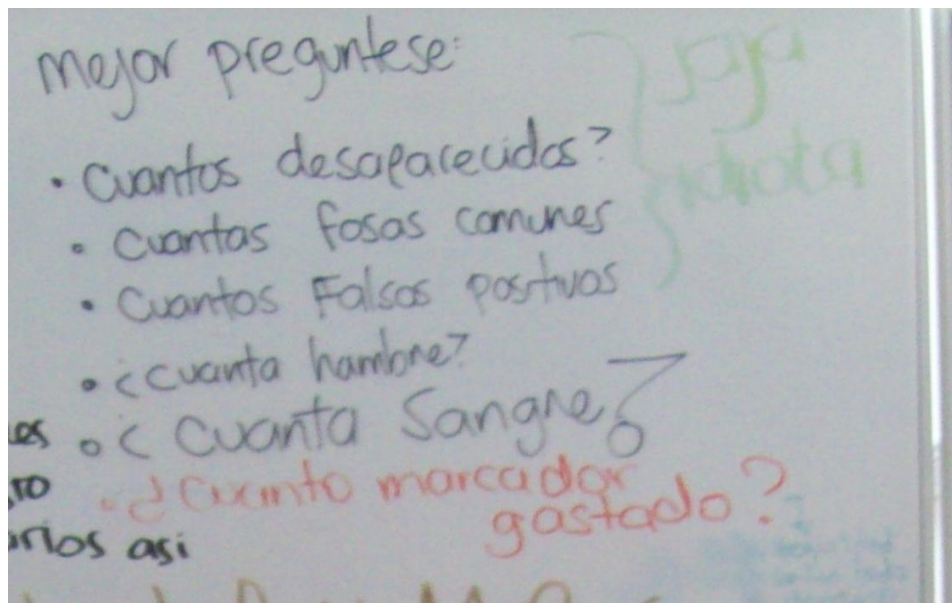 mejor preguntese:
jaja
idiota
• cuantos desaparecidos?
• cuantas fosas comunes
• cuantos Falsos positivos
• ¿cuanta hambre?
• ¿ cuanta Sangre?
• ¿ cuanto marcador
gastado?
asi